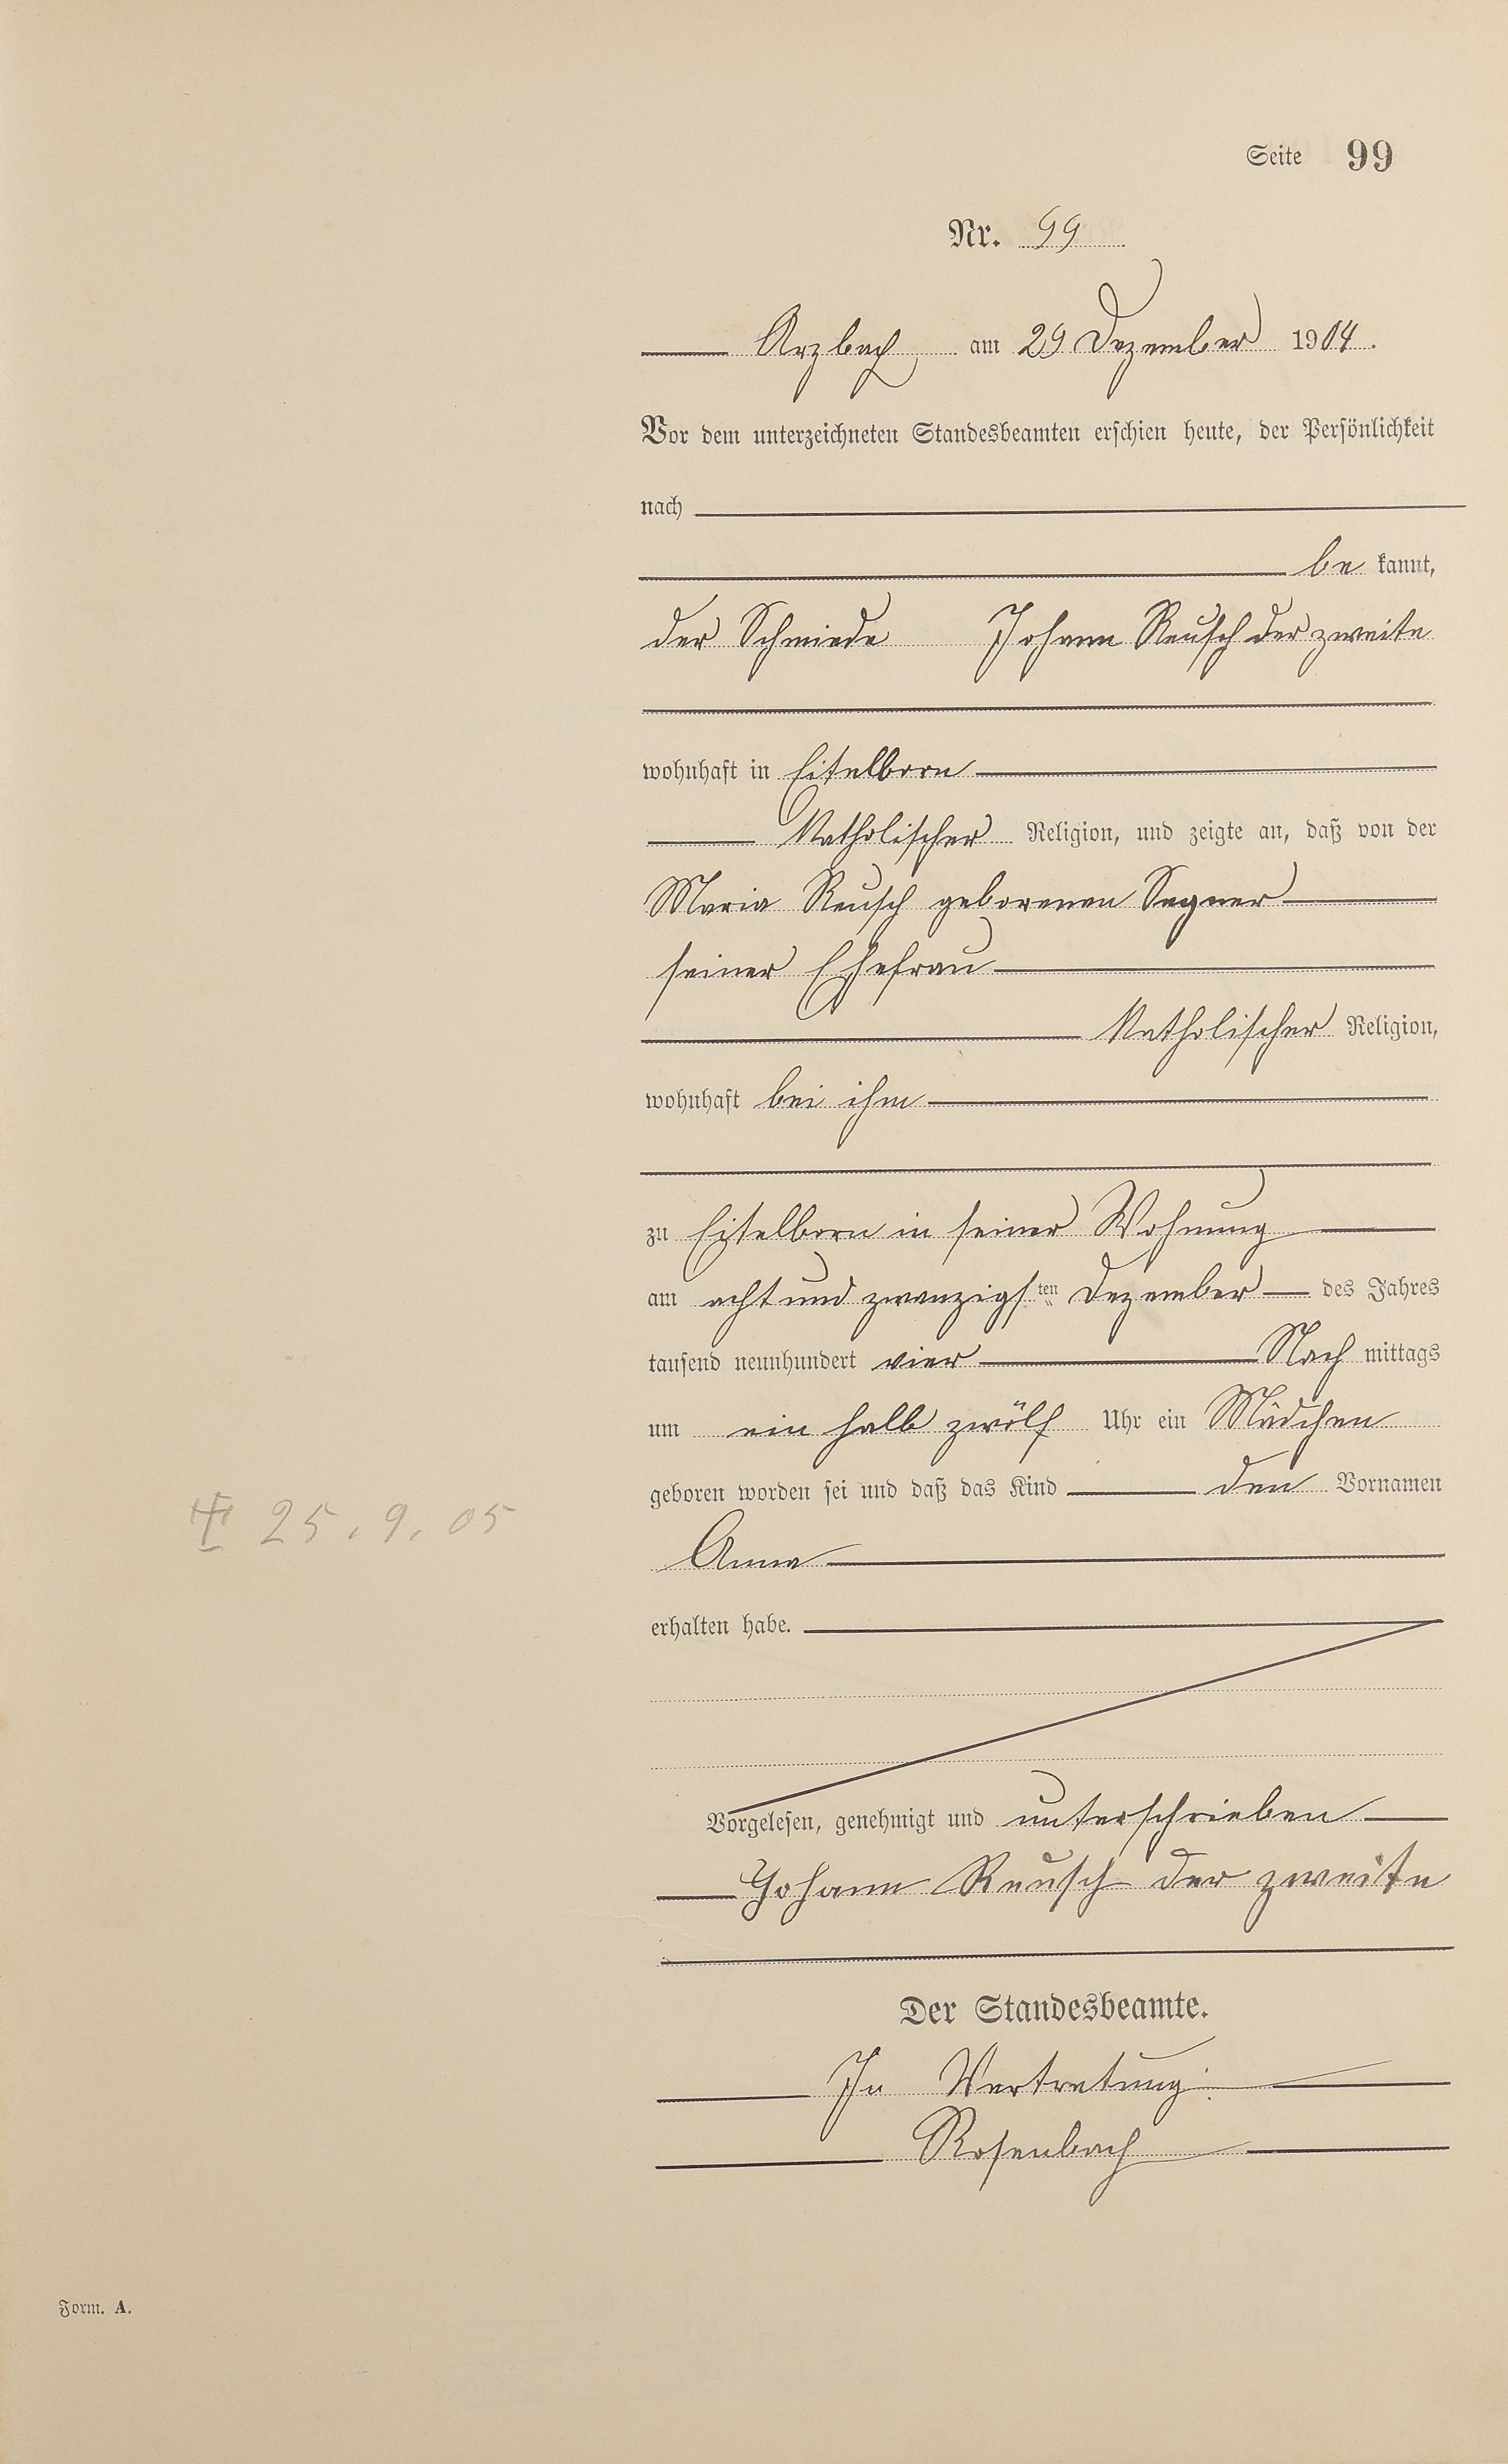 Seite 99
Nr. 99
Arzbach, am 29 Dezember 1904.
Vor dem unterzeichneten Standesbeamten erschien heute, der Persönlichkeit
nach
be kannt,
der Schmiede Johann Reusch der zweite
wohnhaft in Eitelborn
Katholischer Religion, und zeigte an, daß von der
Maria Reusch geborenen Segner
seiner Ehefrau
Katholischer Religion,
wohnhaft bei ihm
zu Eitelborn in seiner Wohnung
am acht und zwanzigsten Dezember des Jahres
tausend neunhundert vier Nach mittags
um ein halb zwölf Uhr ein Mädchen
geboren worden sei und daß das Kind den Vornamen
‡ 25.9.05
Anna
erhalten habe.
Vorgelesen, genehmigt und unterschrieben
Johann Reusch der zweite
Der Standesbeamte.
In Vertretung:
Rosenbach
Form. A.